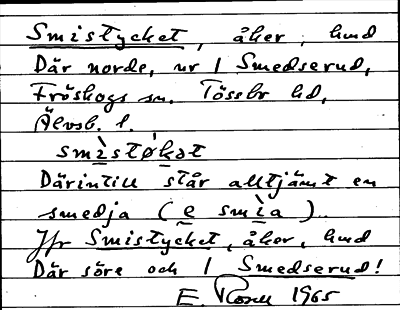 Smistycket, åker, hmd
Där norde, nr 1 Smedserud,
Fröskogs sn. Tössbo hd,
Älvsb. l.
smìstøkət
Därintill står alltjämt en
smedja (e smìa).
Jfr Smistycket, åker, hmd
Där söre och 1 Smedserud!
E. 1965